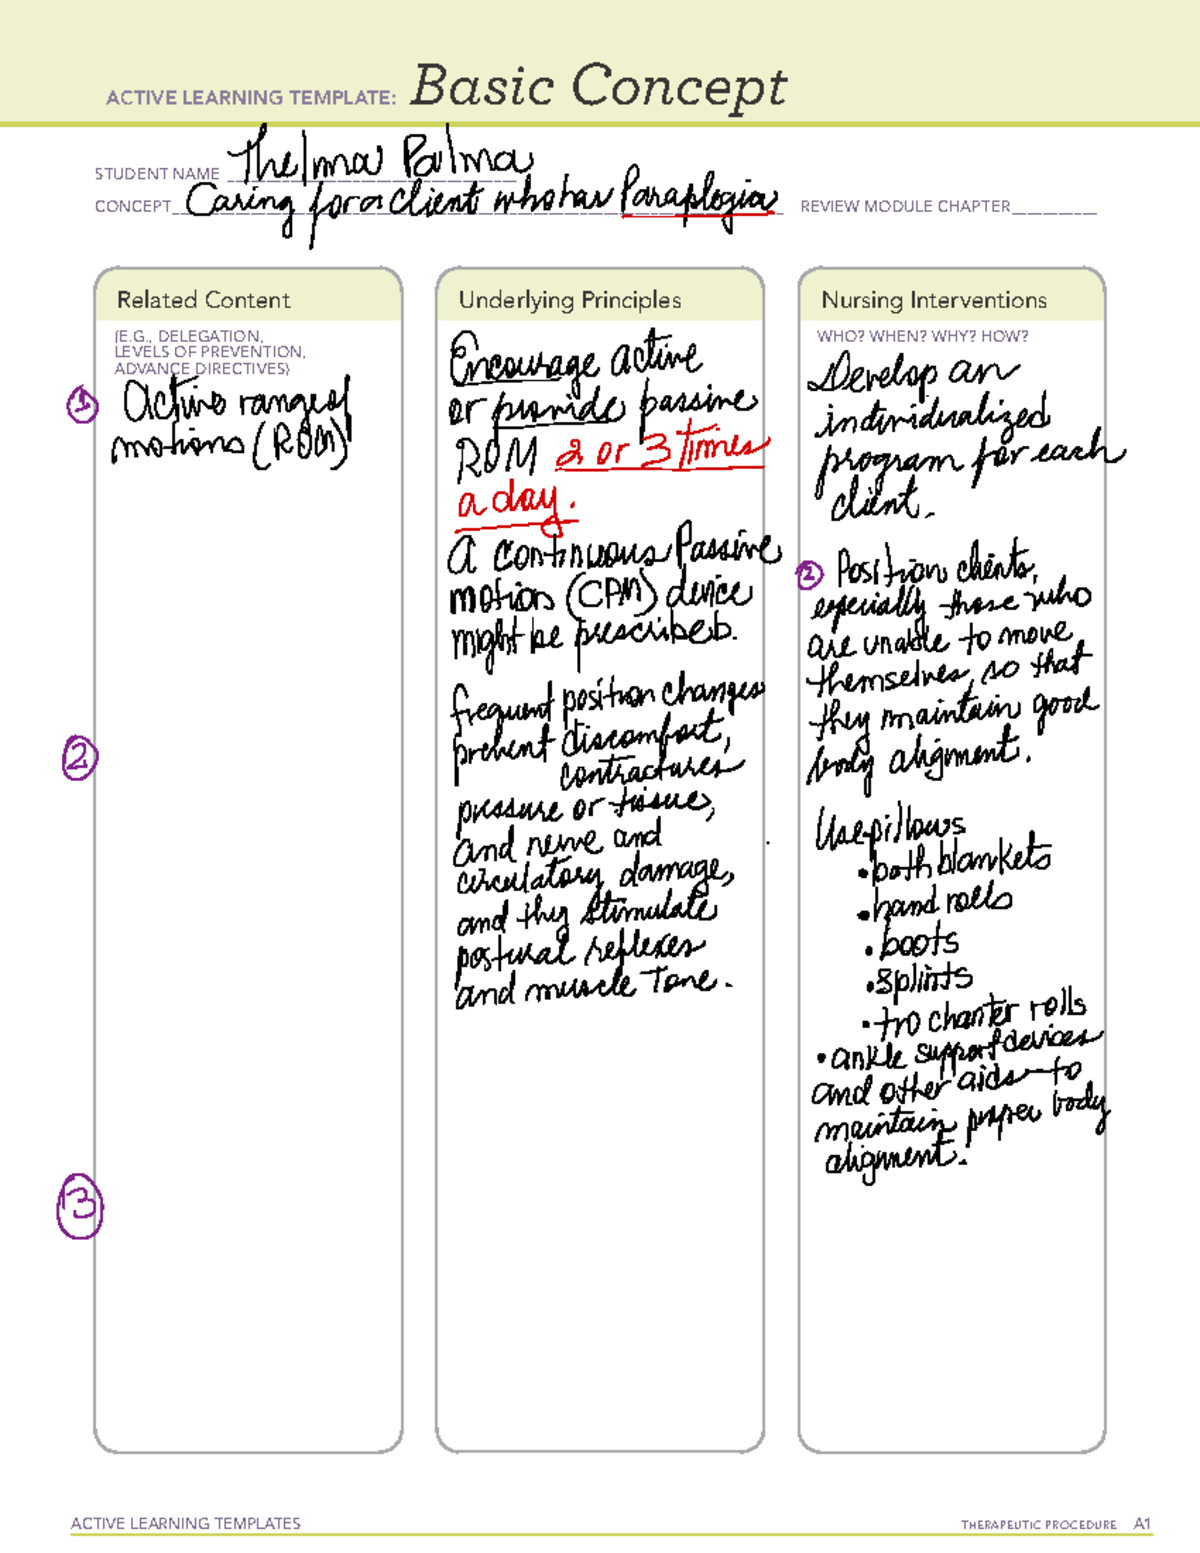 ACTIVE LEARNING TEMPLATE: Basic Concept
STUDENT NAME Thelma Palma
CONCEPT Caring for a client who has Paraplogia REVIEW MODULE CHAPTER
Related Content
(E.G., DELEGATION,
LEVELS OF PREVENTION,
ADVANCE DIRECTIVES)
① Active range of
motions (ROM)
②
③
Underlying Principles
Encourage active
or provide passive
ROM 2 or 3 times
a day.
A continuous Passive
motion (CPM) device
might be prescribeb.
frequent position changes
prevent discomfort,
contractures
pressure or tissue,
and nerve and
circulatory damage,
and they stimulate
postural reflexes
and muscle Tone.
Nursing Interventions
WHO? WHEN? WHY? HOW?
Develop an
individualized
program for each
client.
② Position clients,
especially those who
are unable to move
themselves, so that
they maintain good
body alignment.
Use pillows
• bath blankets
• hand rolls
• boots
• splints
• trochanter rolls
• ankle support devices
and other aids to
maintain proper body
alignment.
ACTIVE LEARNING TEMPLATES
THERAPEUTIC PROCEDURE A1